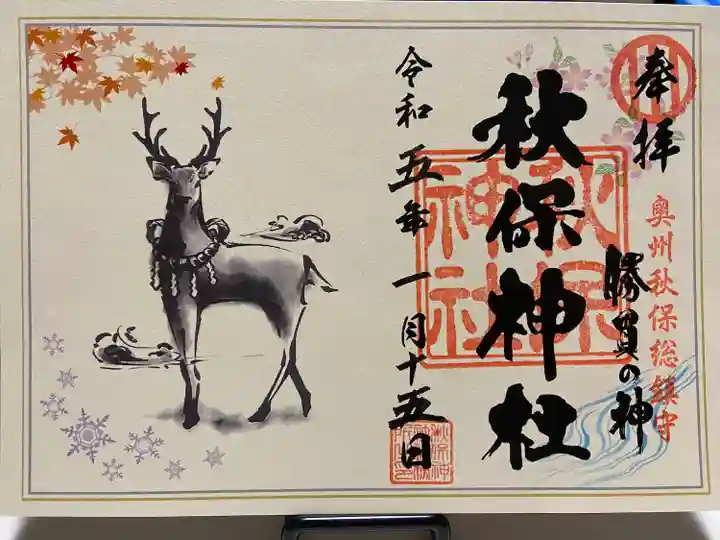 奉拝
奥州秋保総鎮守
勝負の神
秋保神社
秋保
神社
令和五年一月十五日